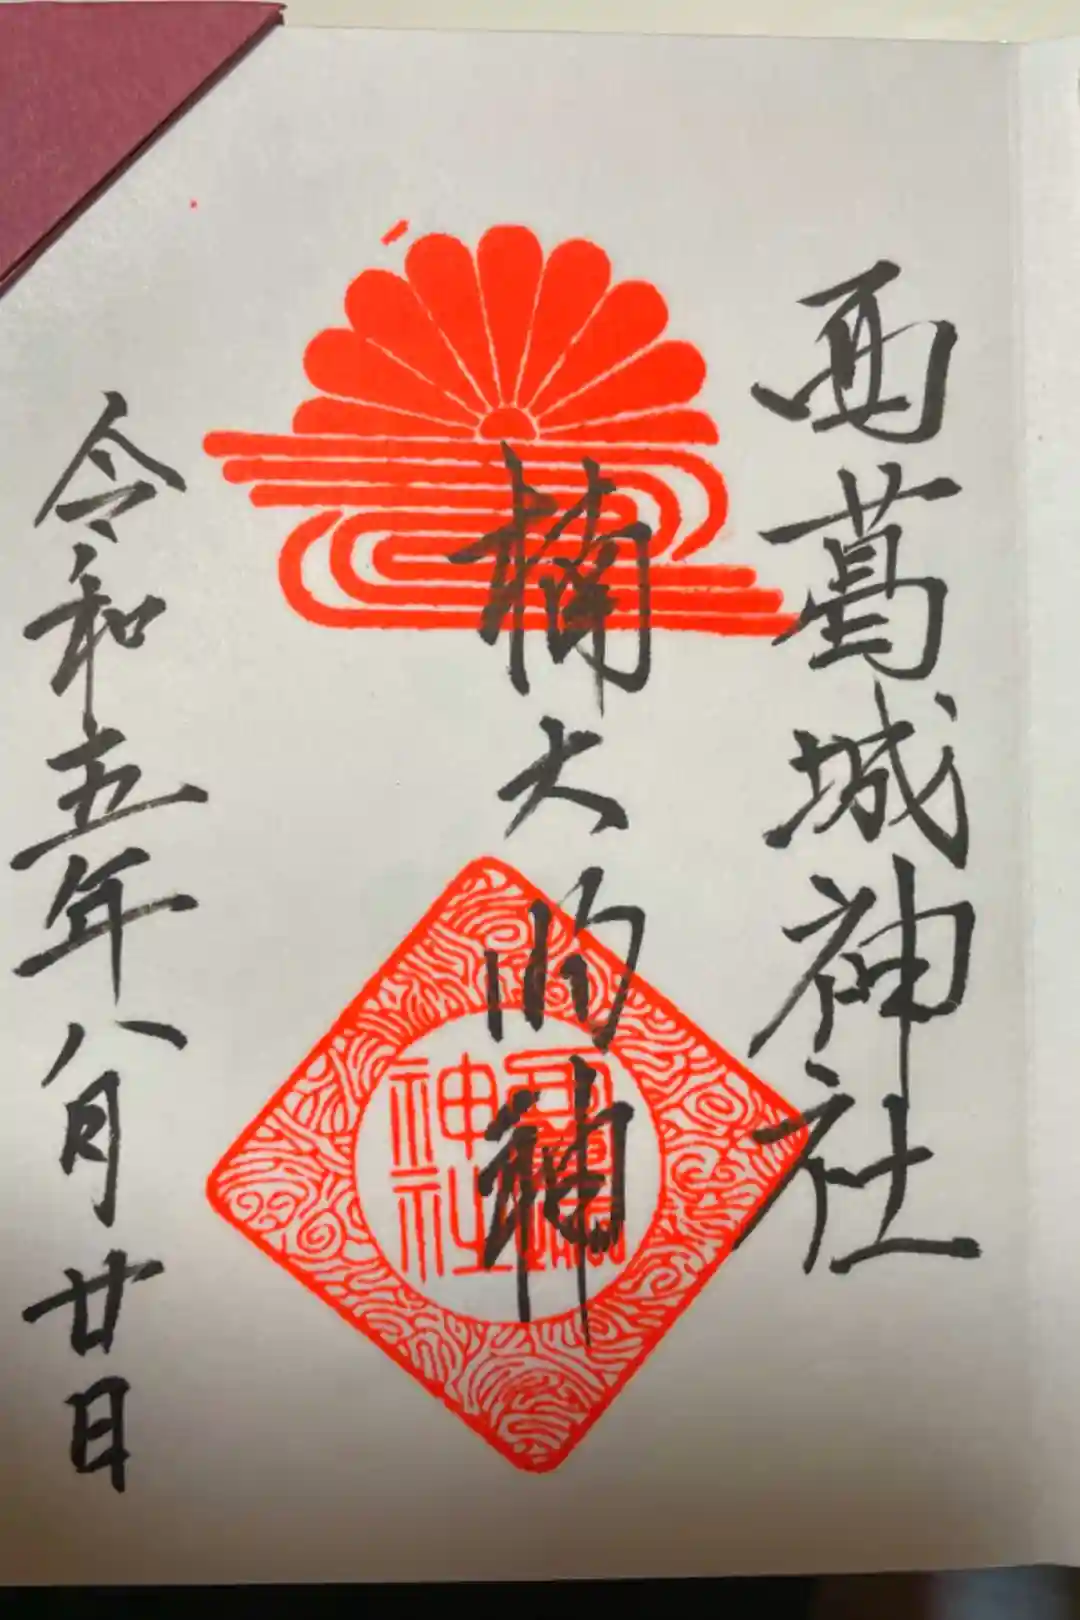 西葛城神社
楠大明神
令和五年八月廿日
神社